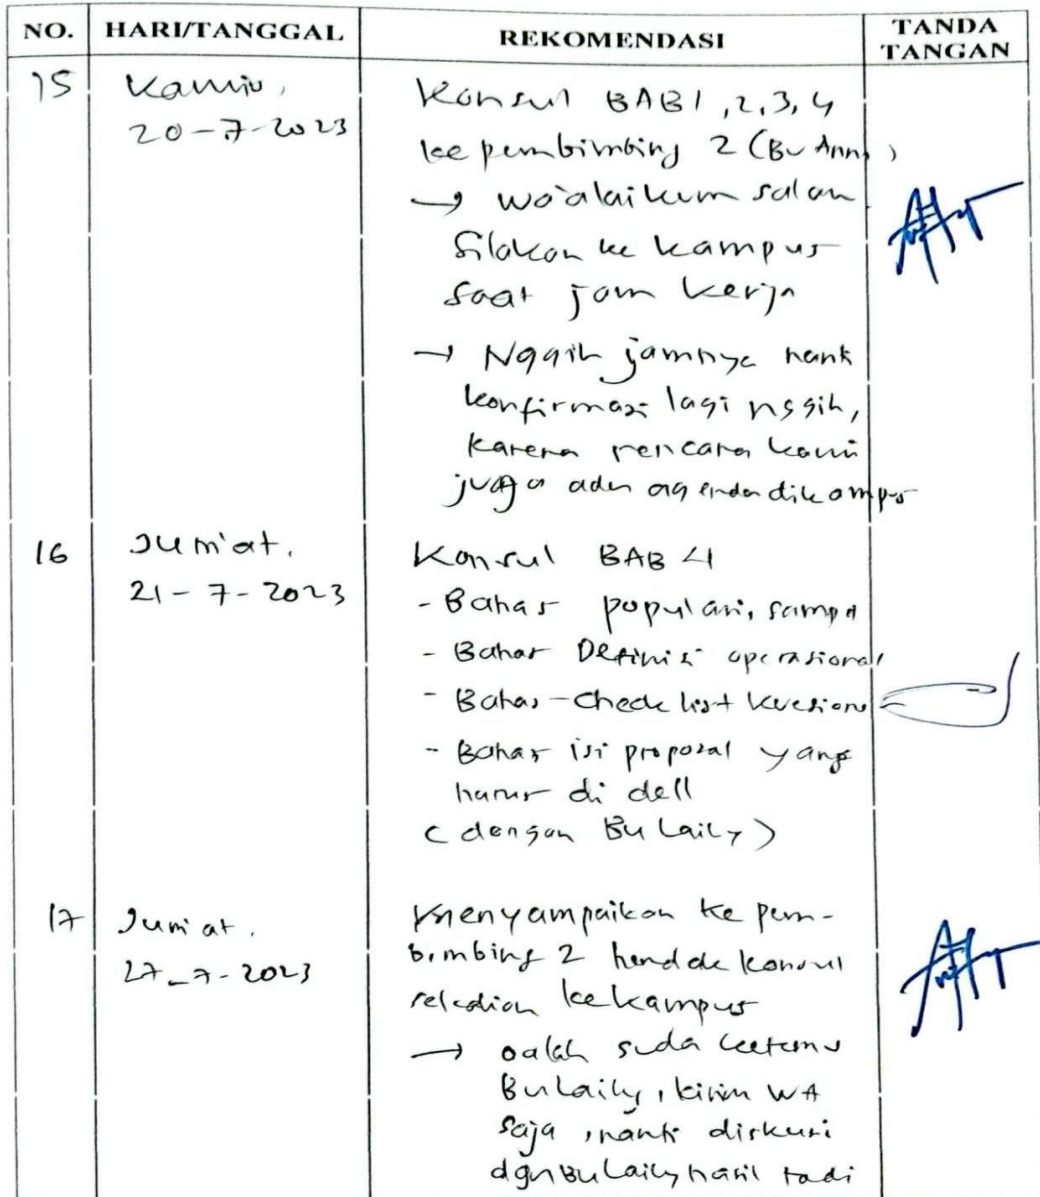 NO. HARI/TANGGAL REKOMENDASI TANDA TANGAN
15 Kamis, 20-7-2023
Konsul BAB 1, 2, 3, 4
ke pembimbing 2 (Bu Anny)
→ wa'alaikum salam
Silakan ke kampus
saat jam kerja
→ Nggih jamnya nanti
konfirmasi lagi nggih,
karena rencana kami
juga ada agenda dikampus
16 Jum'at, 21-7-2023
Konsul BAB 4
- Bahas populasi, sampel
- Bahas Definisi operasional
- Bahas - Check list Kuesioner
- Bahas isi proposal yang
harus di dell
(dengan Bu Laily)
17 Jum'at, 27-7-2023
menyampaikan ke pem-
bimbing 2 hendak konsul
ke kampus
→ oalah suda ketemu
Bu Laily, kirim WA
saja, nanti diskusi
dgn Bu Laily hasil tadi